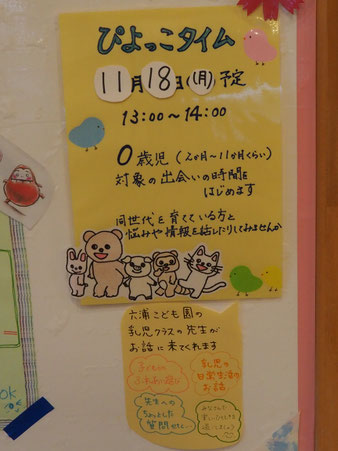 ぴよっこタイム
11月18日(月)予定
13:00～14:00
0歳児(2か月～11か月くらい)
対象の出会いの時間を
はじめます
同世代を育てている方と
悩みや情報を話したりしてみませんか
六浦こども園の
乳児クラスの先生が
お話に来てくれます
子どもとの
ふれあい遊び
乳児の
日常生活の
お話
先生への
ちょっとした
質問タイム
みなさんで